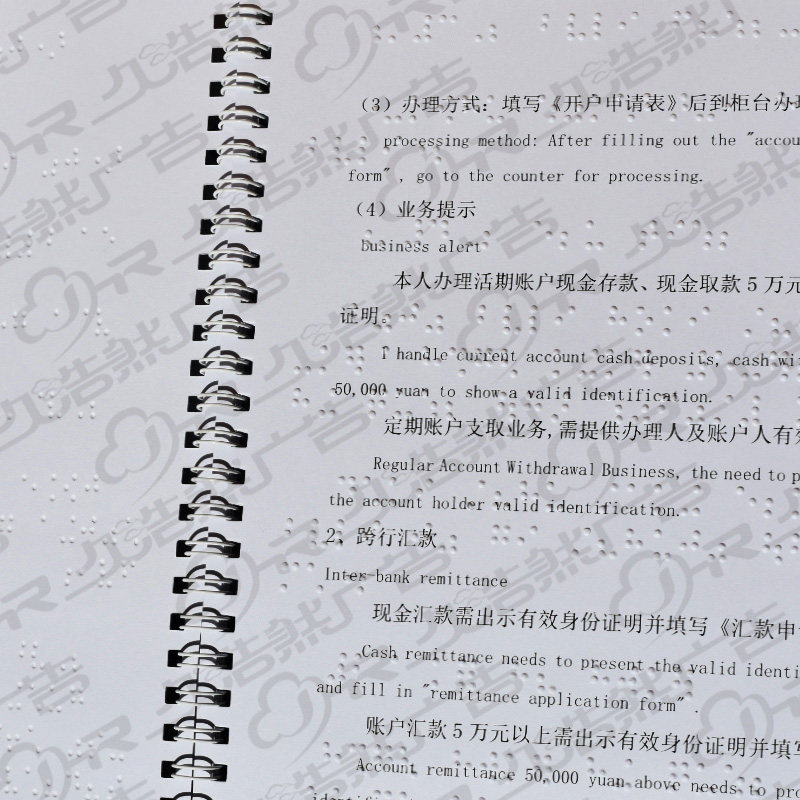 （3）办理方式：填写《开户申请表》后到柜台办理
processing method: After filling out the "accou
form", go to the counter for processing.
（4）业务提示
business alert
本人办理活期账户现金存款、现金取款5万元
证明。
I handle current account cash deposits, cash wi
50,000 yuan to show a valid identification.
定期账户支取业务,需提供办理人及账户人有效
Regular Account Withdrawal Business, the need to p
the account holder valid identification.
2、跨行汇款
Inter-bank remittance
现金汇款需出示有效身份证明并填写《汇款申
Cash remittance needs to present the valid identi
and fill in "remittance application form".
账户汇款5万元以上需出示有效身份证明并填写
Account remittance 50,000 yuan above needs to pro
久浩然广告